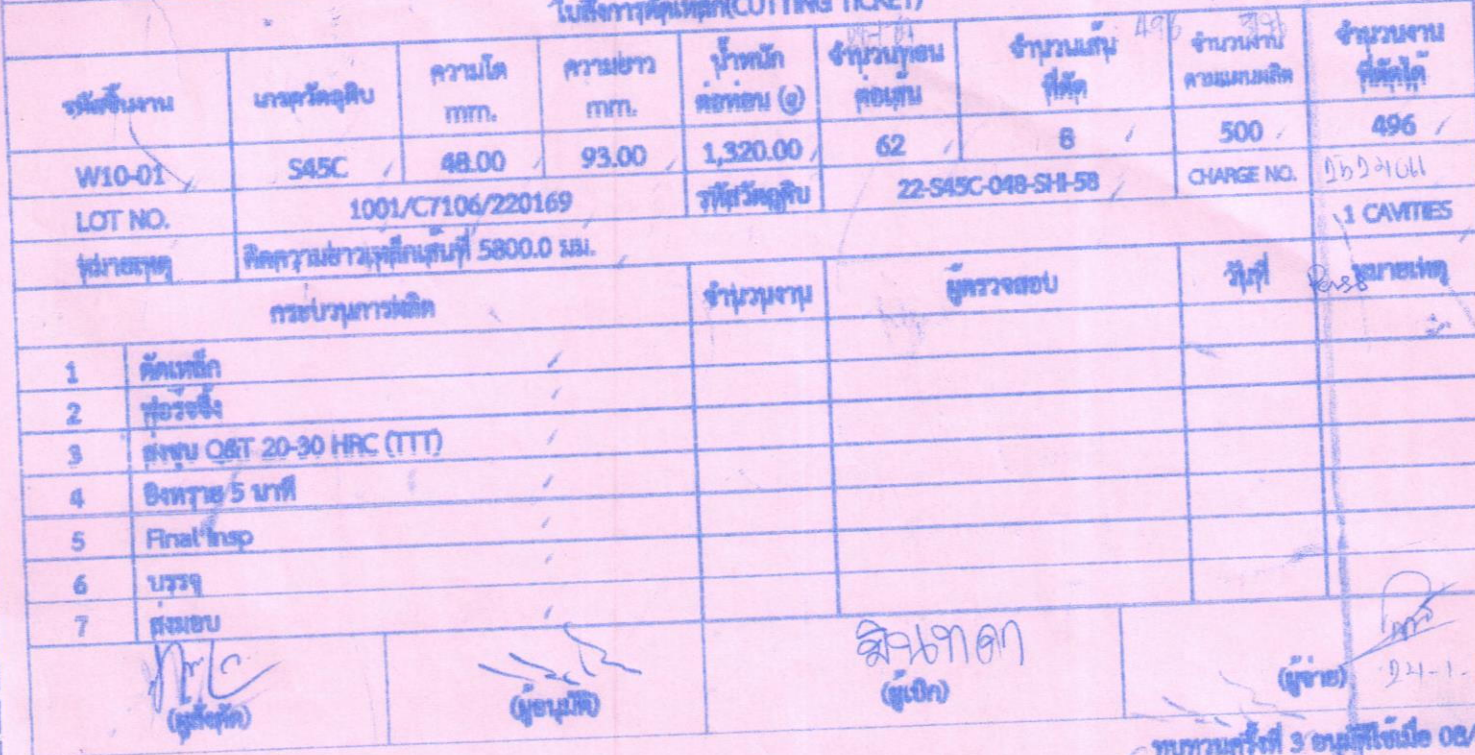 ใบสั่งการตัดเหล็ก(CUTTING TICKET)
รหัสชิ้นงาน เกรดวัตถุดิบ ความโต mm. ความยาว mm. น้ำหนักต่อท่อน (g) จำนวนท่อนต่อเส้น จำนวนเส้นที่ตัด 496 จำนวนงานตามแผนผลิต จำนวนงานที่ตัดได้
W10-01 S45C 48.00 93.00 1,320.00 62 8 500 496
LOT NO. 1001/C7106/220169 รหัสวัตถุดิบ 22-S45C-048-SHI-58 CHARGE NO.
หมายเหตุ คิดความยาวเหล็กเส้นที่ 5800.0 มม. 1 CAVITIES
กระบวนการผลิต จำนวนงาน ผู้ตรวจสอบ วันที่ หมายเหตุ
1 ตัดเหล็ก
2 ฟอร์จจิ้ง
3 ส่งชุบ Q&T 20-30 HRC (TTT)
4 ยิงทราย 5 นาที
5 Final Insp
6 บรรจุ
7 ส่งมอบ
(ผู้สั่งตัด) (ผู้อนุมัติ) (ผู้เบิก) (ผู้จ่าย)
ทบทวนครั้งที่ 3 อนุมัติใช้เมื่อ 08/